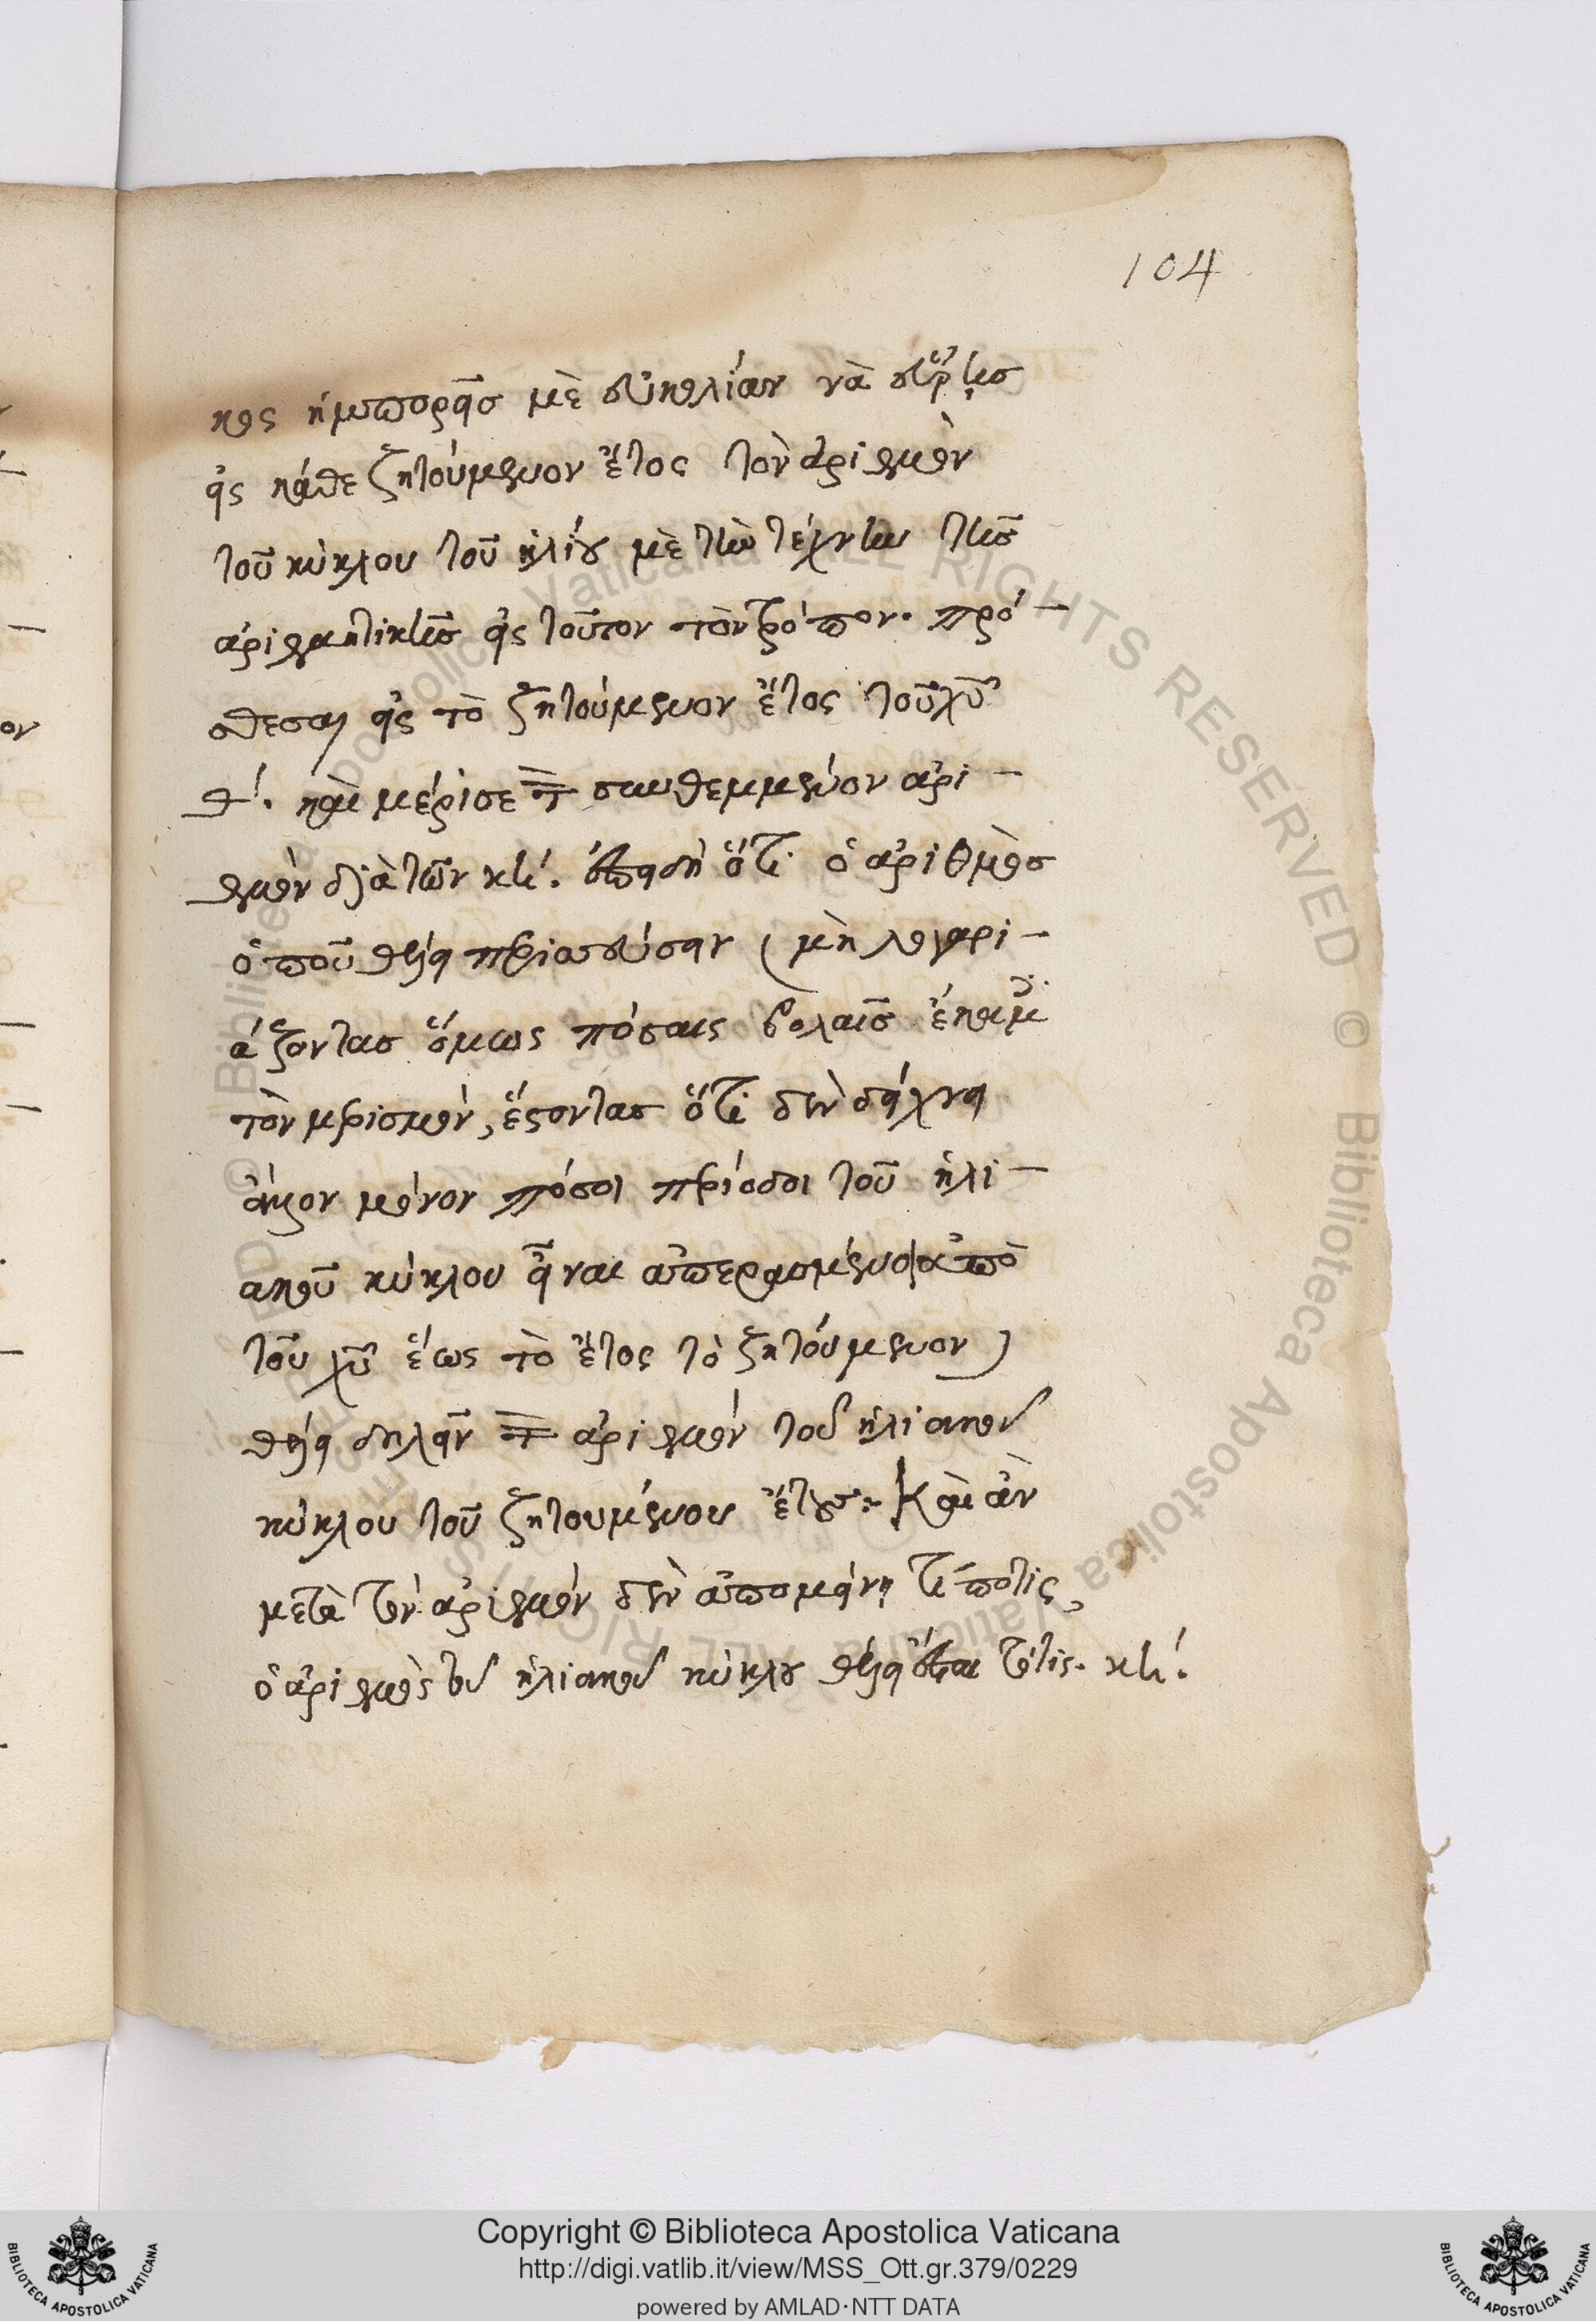 104
κος ἠμπορεῖς μὲ εὐκολίαν νὰ εὕρῃς
εἰς κάθε ζητούμενον ἔτος τὸν ἀριθμὸν
τοῦ κύκλου τοῦ ἡλίου μὲ τὴν τέχνην τῆς
ἀριθμητικῆς εἰς τοῦτον τὸν τρόπον. πρό-
σθεσαι εἰς τὸ ζητούμενον ἔτος τοῦ χῦ
θ΄. καὶ μέρισε τὸν συνθεμμένον ἀρι-
θμὸν διὰ τῶν κη΄. ἐπειδὴ ὅτι ὁ ἀριθμὸς
ὁποῦ θέλει περισσεύσειν (μὴ λογαρι-
άζοντας ὅμως πόσαις βολαῖς ἔκαμες
τὸν μερισμόν, ἔσοντας ὅτι δὲν δείχνει
ἄλλον μόνον πόσοι περίοδοι τοῦ ἡλι-
ακοῦ κύκλου εἶναι ἀπερασμένοι ἀπὸ
τοῦ χῦ ἕως τὸ ἔτος τὸ ζητούμενον)
θέλει δηλεῖν τὸν ἀριθμὸν τοῦ ἡλιακοῦ
κύκλου τοῦ ζητουμένου ἔτους:- Καὶ ἂν
μετὰ τὸν ἀριθμὸν δὲν ἀπομείνῃ τίποτις,
ὁ ἀριθμὸς τοῦ ἡλιακοῦ κύκλου θέλει εἶσται τότις. κη΄.
Copyright © Biblioteca Apostolica Vaticana
http://digi.vatlib.it/view/MSS_Ott.gr.379/0229
powered by AMLAD·NTT DATA